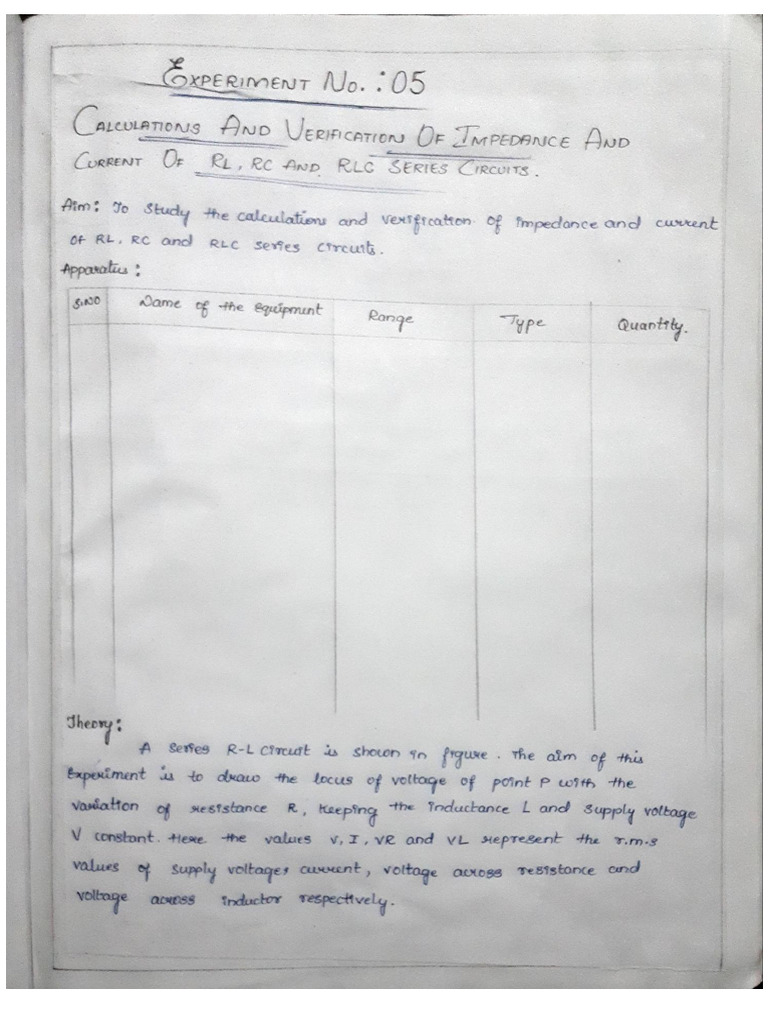 EXPERIMENT NO. : 05
CALCULATIONS AND VERIFICATION OF IMPEDANCE AND
CURRENT OF RL, RC AND RLC SERIES CIRCUITS.
Aim: To study the calculations and verification of impedance and current
of RL, RC and RLC series circuits.
Apparatus:
S.NO Name of the equipment Range Type Quantity.
Theory:
A series R-L circuit is shown in figure. The aim of this
experiment is to draw the locus of voltage of point P with the
variation of resistance R, keeping the inductance L and supply voltage
V constant. Here the values V, I, VR and VL represent the r.m.s
values of supply voltages current, voltage across resistance and
voltage across inductor respectively.